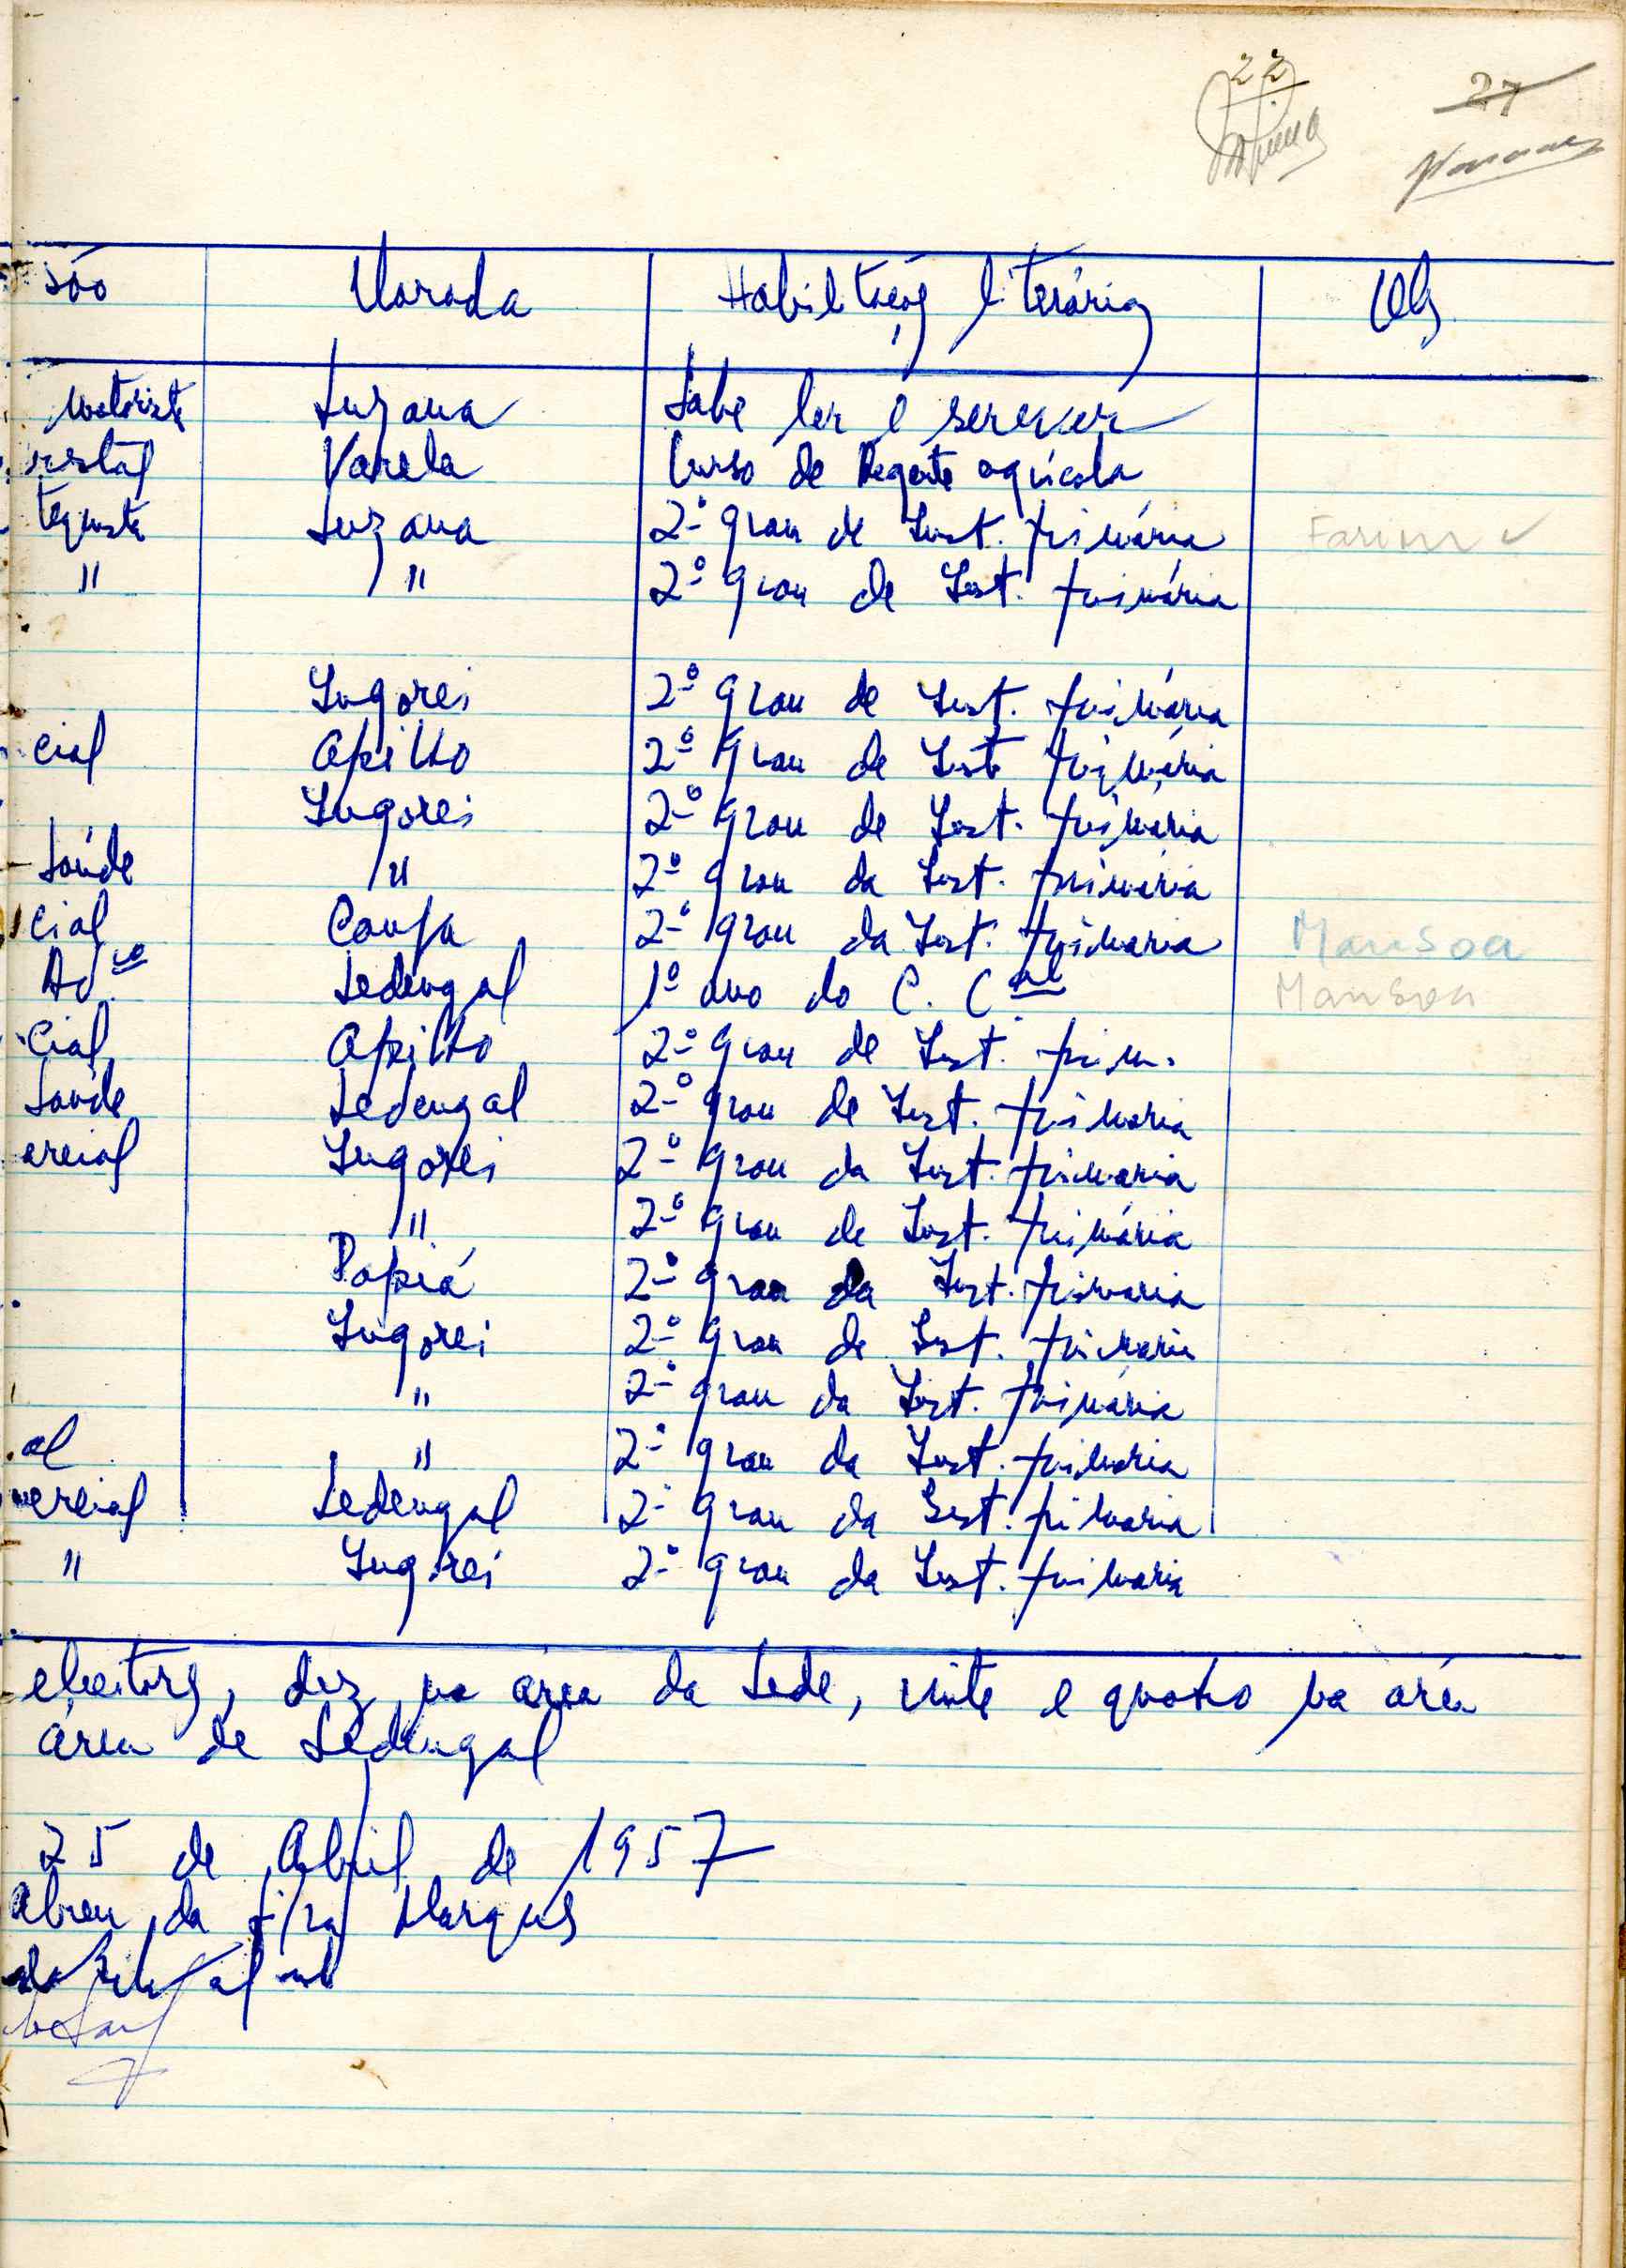 22 27
são Morada Habilitações literárias Obs
motorista Suzana Sabe ler e screver
restal Varela Curso de Regente agrícola
Suzana 2º grau de Inst. primária Farim
" " 2º grau de Inst. primária
Ingorei 2º grau de Inst. primária
cial Apilho 2º grau de Inst primária
Ingorei 2º grau de Inst. primária
Saúde " 2º grau da Inst. primária
cial 2º grau da Inst. primaria Mansoa
Ad.vo Sedengal 1º ano do C. Cal Mansoa
cial Apilho 2º grau de Inst. prim.
Saúde Sedengal 2º grau de Inst. primaria
ercial Ingorei 2º grau da Inst. primaria
" 2º grau de Inst. primária
Papiá 2º grau da Inst. primaria
Ingorei 2º grau de Inst. primaria
" 2º grau da Inst. primária
al " 2º grau da Inst. primaria
mercial Sedengal 2º grau da Inst. primaria
" Ingorei 2º grau da Inst. primaria
eleitors, dez na área da Sede, vinte e quatro na área
área de Sedengal
25 de Abril de 1957
Abreu da Marques